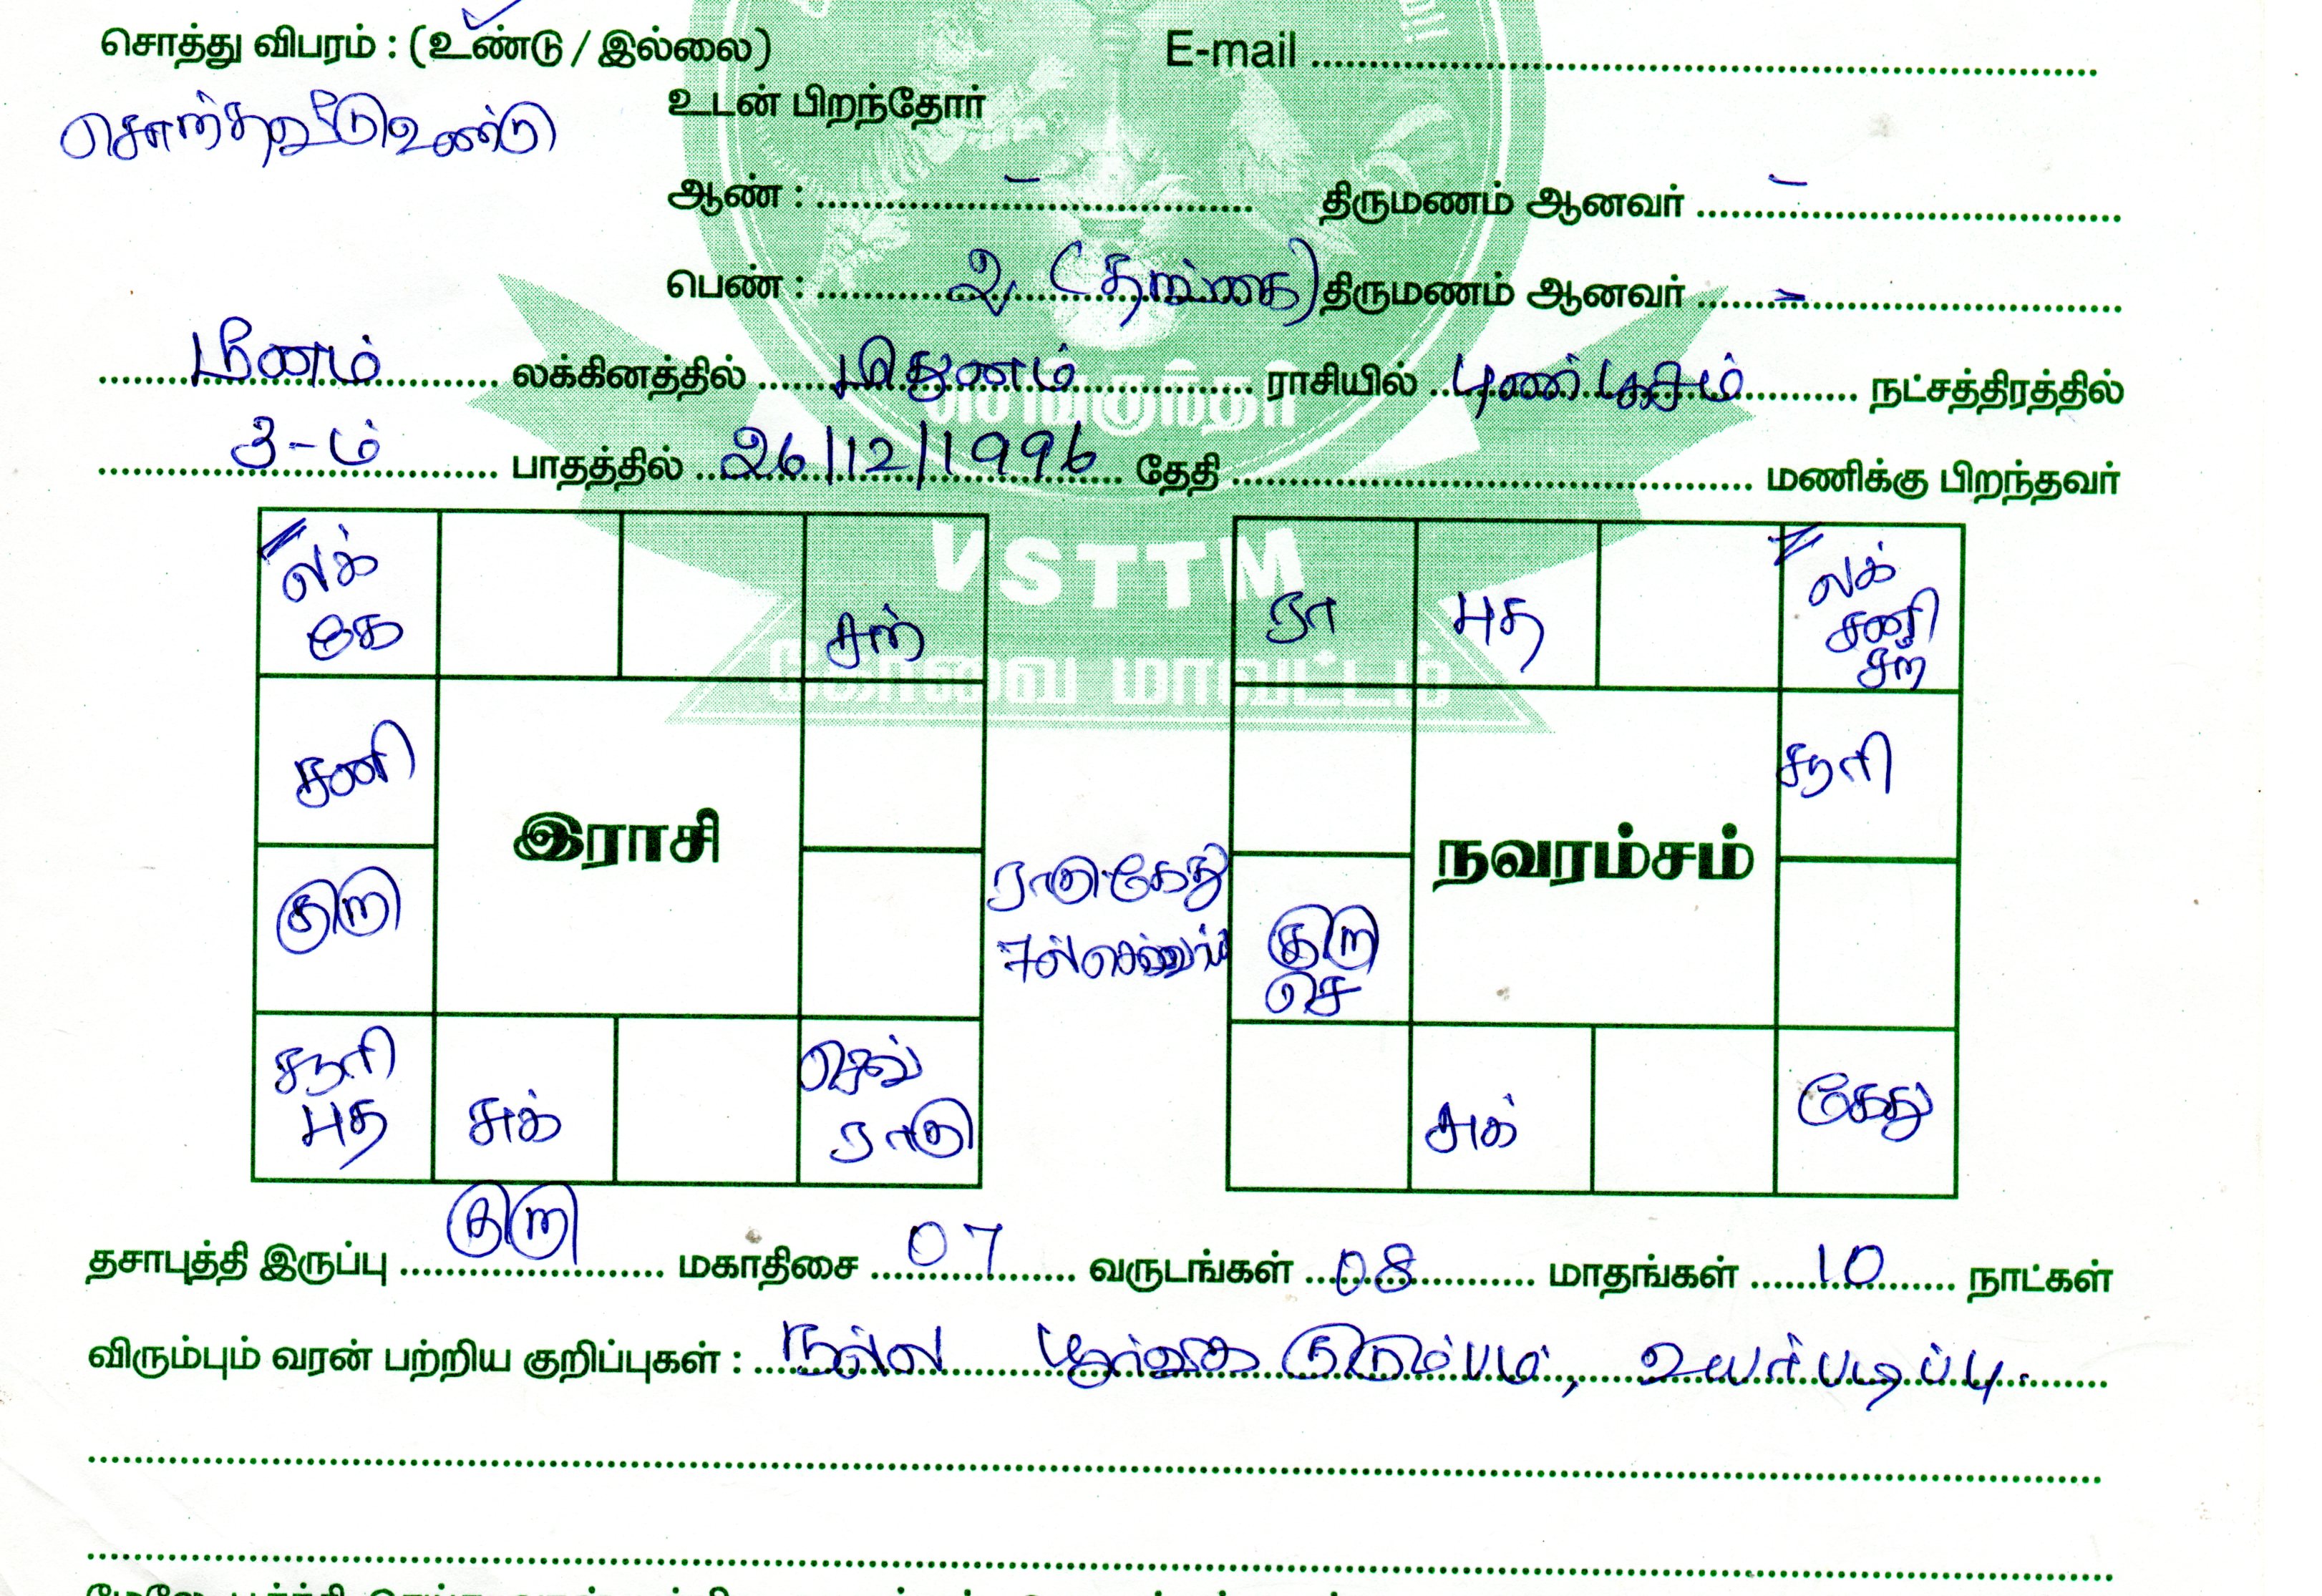 சொத்து விபரம் : (உண்டு / இல்லை) E-mail
சொந்தவீடு உண்டு
உடன் பிறந்தோர்
ஆண் : – திருமணம் ஆனவர் –
பெண் : 2, (தங்கை) திருமணம் ஆனவர் –
மீனம் லக்கினத்தில் மிதுனம் ராசியில் புனர்பூசம் நட்சத்திரத்தில்
செங்குந்தர்
3-ம் பாதத்தில் 26/12/1996 தேதி மணிக்கு பிறந்தவர்
VSTTM
கோவை மாவட்டம்
லக் கே சந்
சனி
குரு
சூரி புத சுக் செவ் ராகு
இராசி
ராகு கேது
7ல் செவ்வாய்
ரா புத லக் சனி சந்
சூரி
குரு செ
சுக் கேது
நவரம்சம்
தசாபுத்தி இருப்பு குரு மகாதிசை 07 வருடங்கள் 08 மாதங்கள் 10 நாட்கள்
விரும்பும் வரன் பற்றிய குறிப்புகள் : நல்ல பூர்வீக குடும்பம், உயர்படிப்பு.